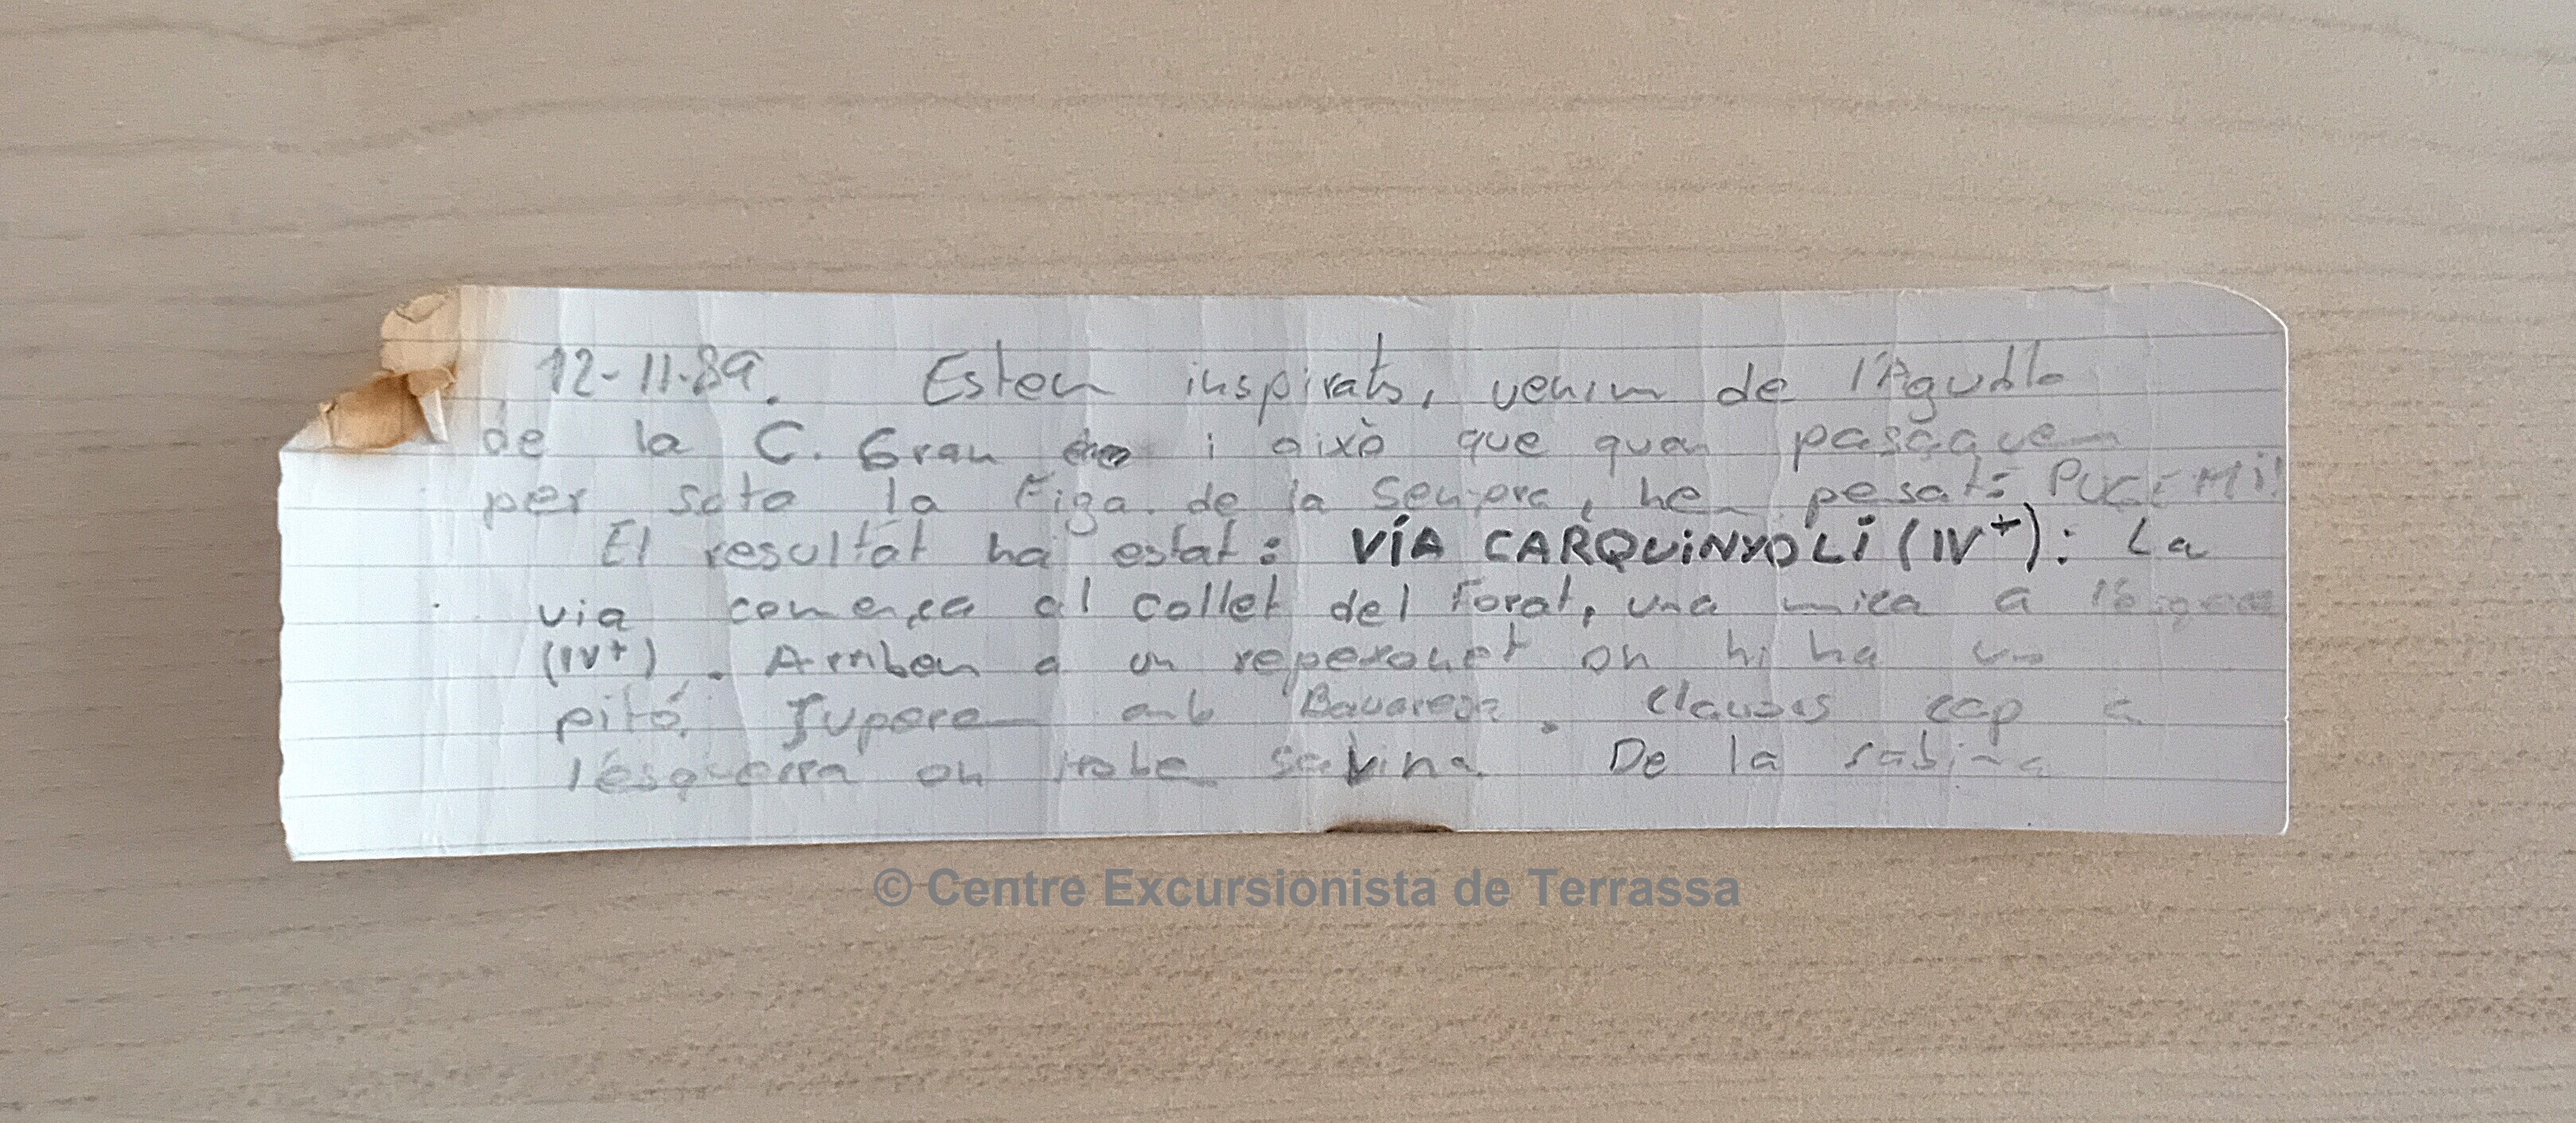 12-11-89. Estem inspirats, venim de l'Agulla
de la C. Gran i això que quan pasàvem
per sota la Figa. de la Senyora, hem pesat: PUGEMI!
El resultat ha estat: VÍA CARQUINYOLI (IV+): La
via comença al collet del Forat, una mica a
(IV+). Arribem a un repexonet on hi ha un
pitó. Superem amb Bavaresa. Clauses cap a
l'esquerra on trobem sabina. De la sabina
© Centre Excursionista de Terrassa